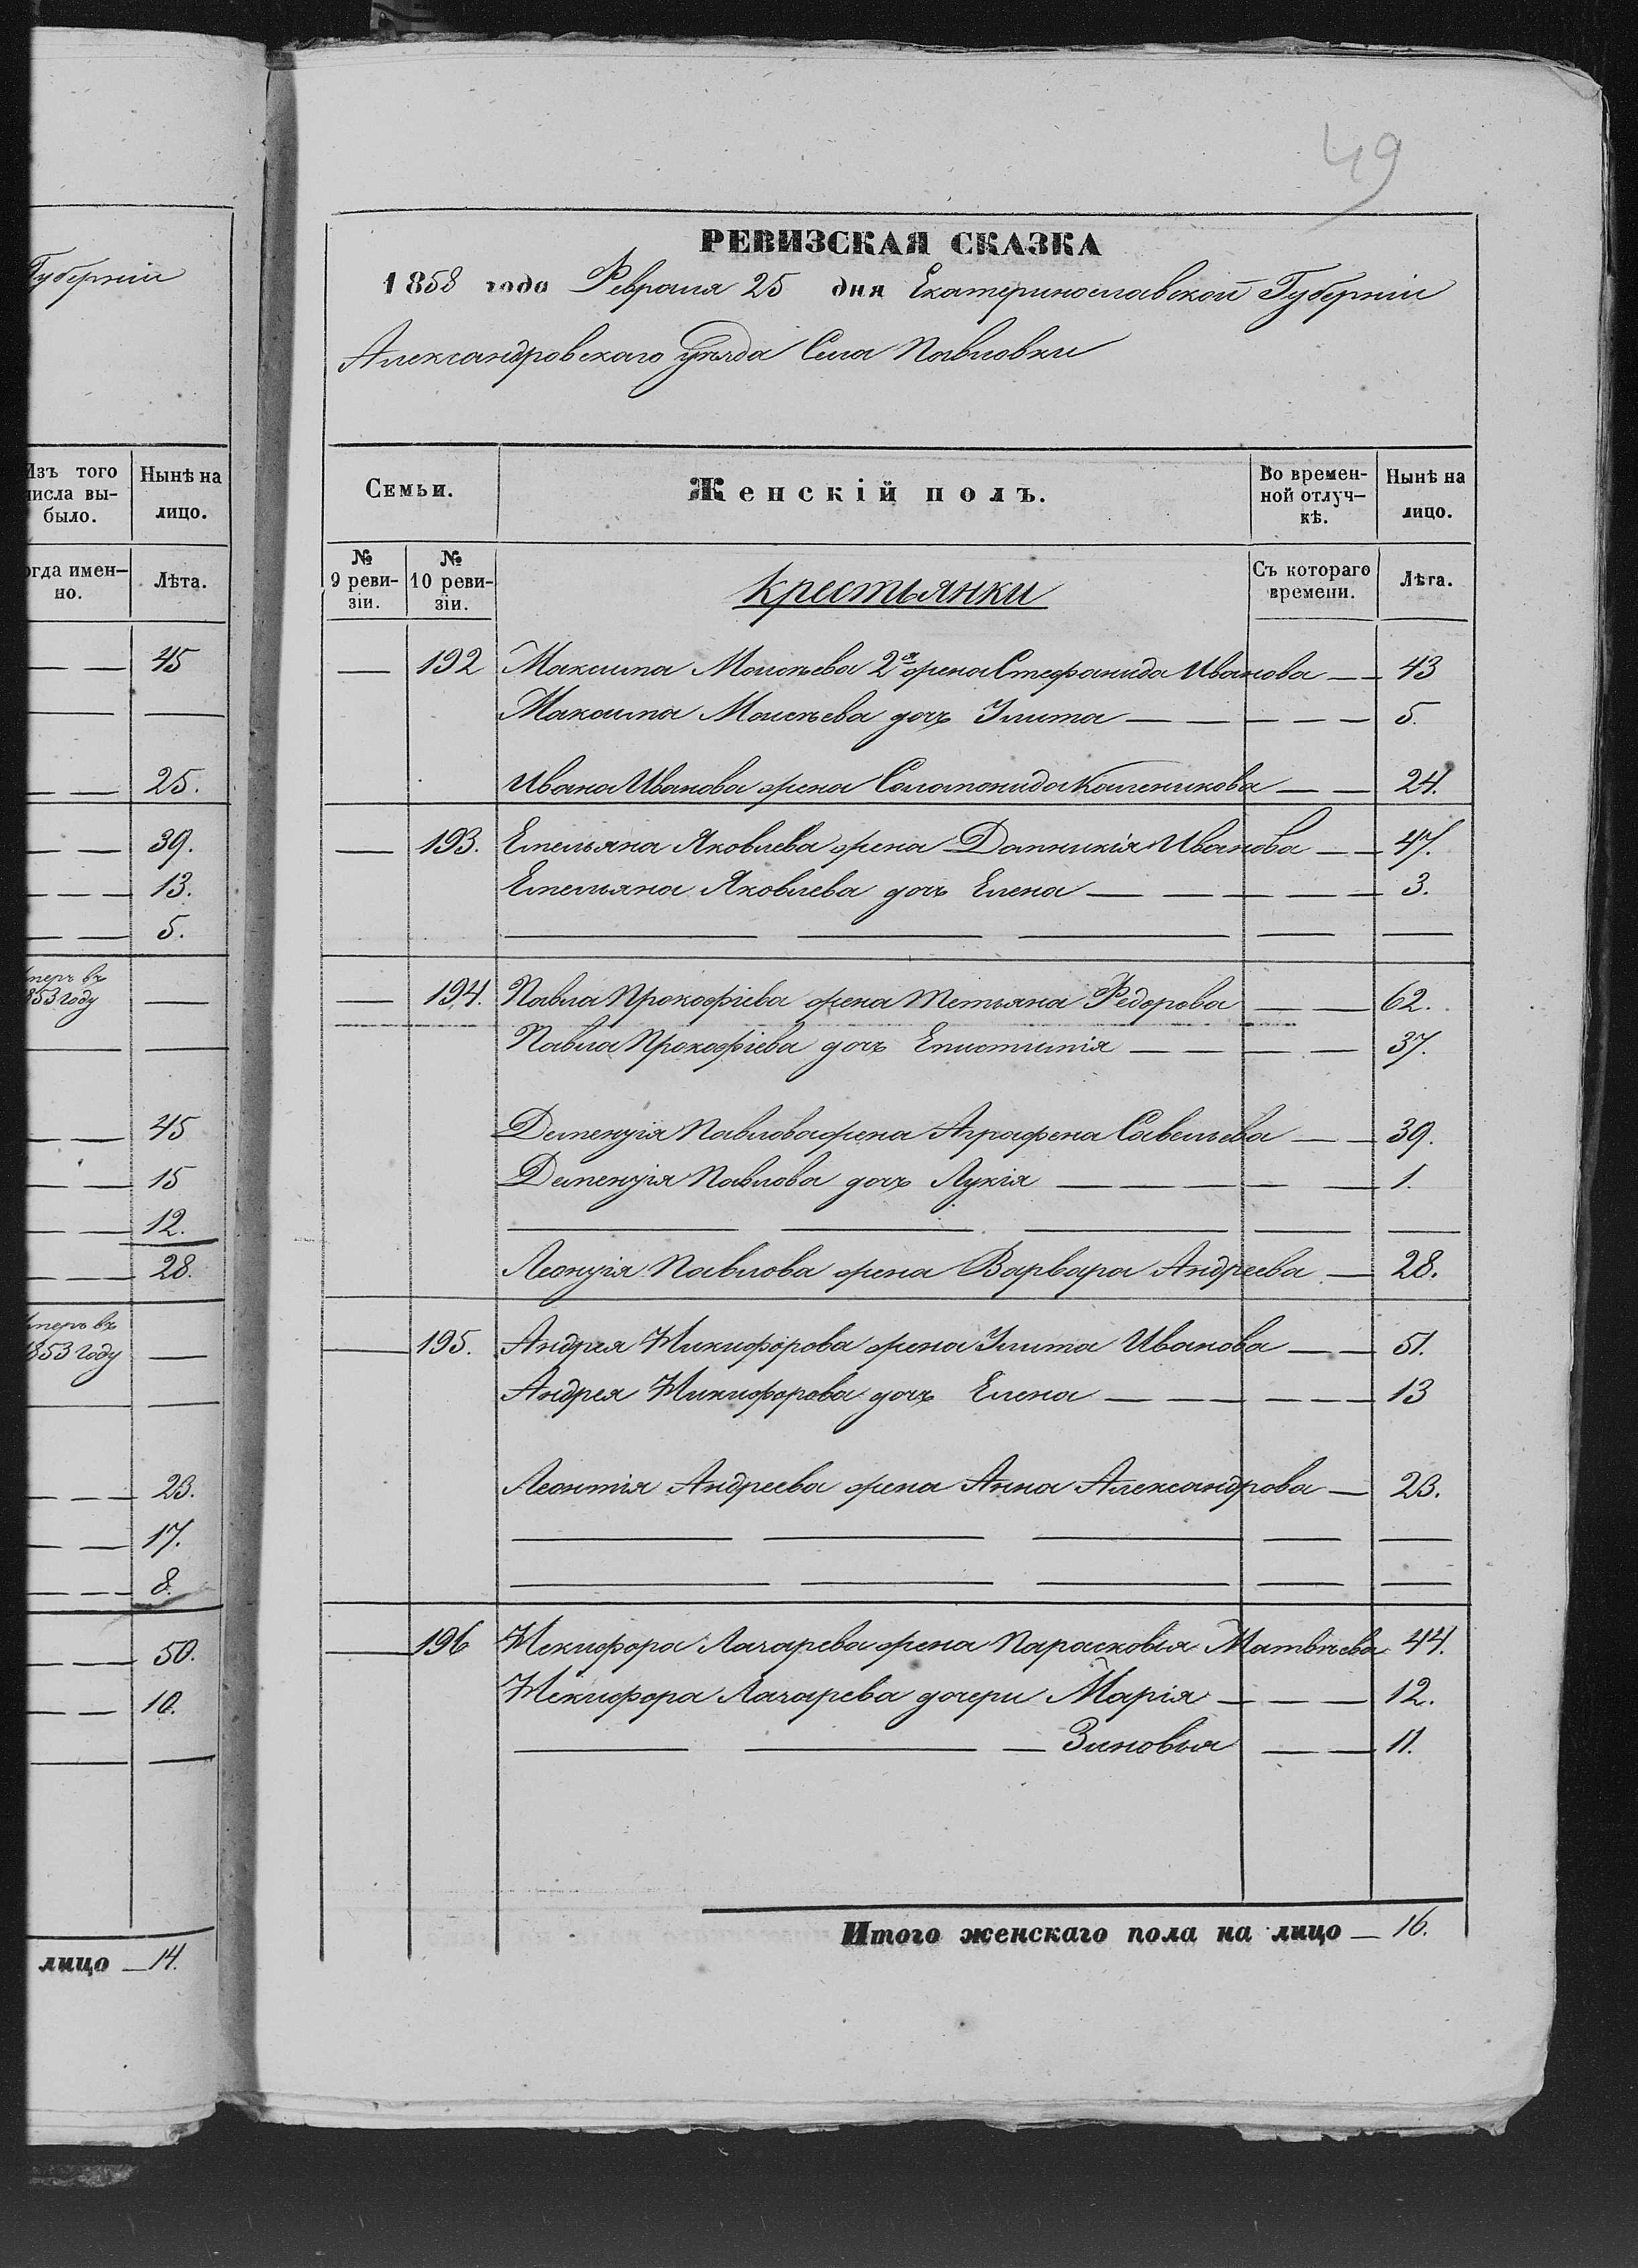 49
Губерніи
Изъ того числа вы-было.
Нынѣ на лицо.
огда имен-но.
Лѣта.
45
25.
39.
13.
5.
умеръ въ
1853 году
45
15
12.
28.
умеръ въ
1853 году
23.
17.
8.
50.
10.
лицо — 14.
РЕВИЗСКАЯ СКАЗКА
1858 года Февраля 25 дня Екатеринославской Губерніи
Александровскаго уѣзда Села Павловки
Семьи.
Женскій полъ.
Во времен-ной отлуч-кѣ.
Нынѣ на лицо.
№ 9 реви-зіи.
№ 10 реви-зіи.
Крестьянки
Съ котораго времени.
Лѣта.
— 192 Максима Моисѣева 2я жена Стефанида Иванова — — 43
Максима Моисѣева дочь Улита — — — — — 5.
Ивана Иванова жена Саломонида Каленикова — — 24.
— 193. Емельяна Яковлева жена Домникія Иванова — — 47.
Емельяна Яковлева дочь Елена — — — — — 3.
— 194. Павла Прокофіева жена Тетьяна Федорова — — 62.
Павла Прокофіева дочь Епистимія — — — — 37.
Дементія Павлова жена Аграфена Савельева — — 39.
Дементія Павлова дочь Лукія — — — — — 1.
Леонтія Павлова жена Варвара Андреева — 28.
— 195. Андрея Никифорова жена Улита Иванова — — 51.
Андрея Никифорова дочь Елена — — — — — — 13
Леонтія Андреева жена Анна Александрова — 23.
— 196 Некифора Лазарева жена Парасковія Матвѣева 44.
Некифора Лазарева дочери Марія — — — 12.
— — — Зиновья — — 11.
Итого женскаго пола на лицо — 16.